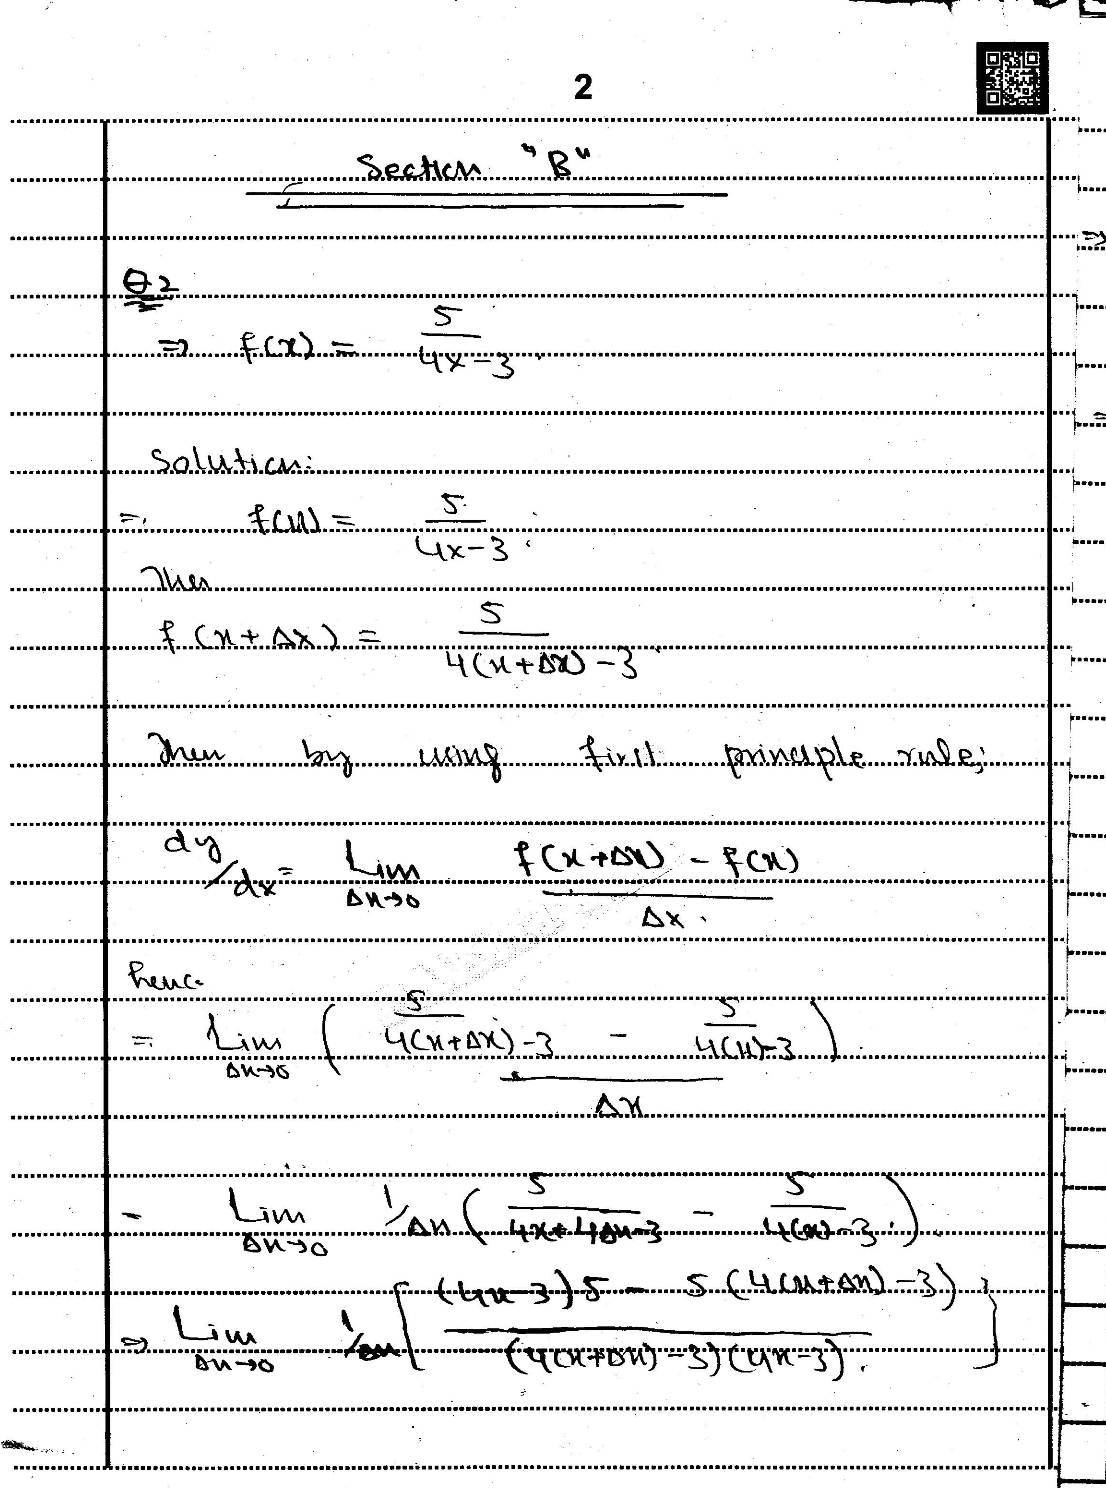 2
Section "B"
Q2
⇒ f(x) = 5/(4x-3).
Solution:
=. f(x) = 5/(4x-3).
Then
f(x+Δx) = 5/(4(x+Δx)-3).
Then by using first principle rule;
dy/dx = Lim Δx→0 (f(x+Δx) - f(x))/Δx.
hence
=. Lim Δx→0 (5/(4(x+Δx)-3) - 5/(4(x)-3))/Δx
- Lim Δx→0 1/Δx (5/(4x+4Δx-3) - 5/(4(x)-3)).
⇒ Lim Δx→0 1/Δx [((4x-3)5 - 5(4(x+Δx)-3))/((4(x+Δx)-3)(4x-3)).]